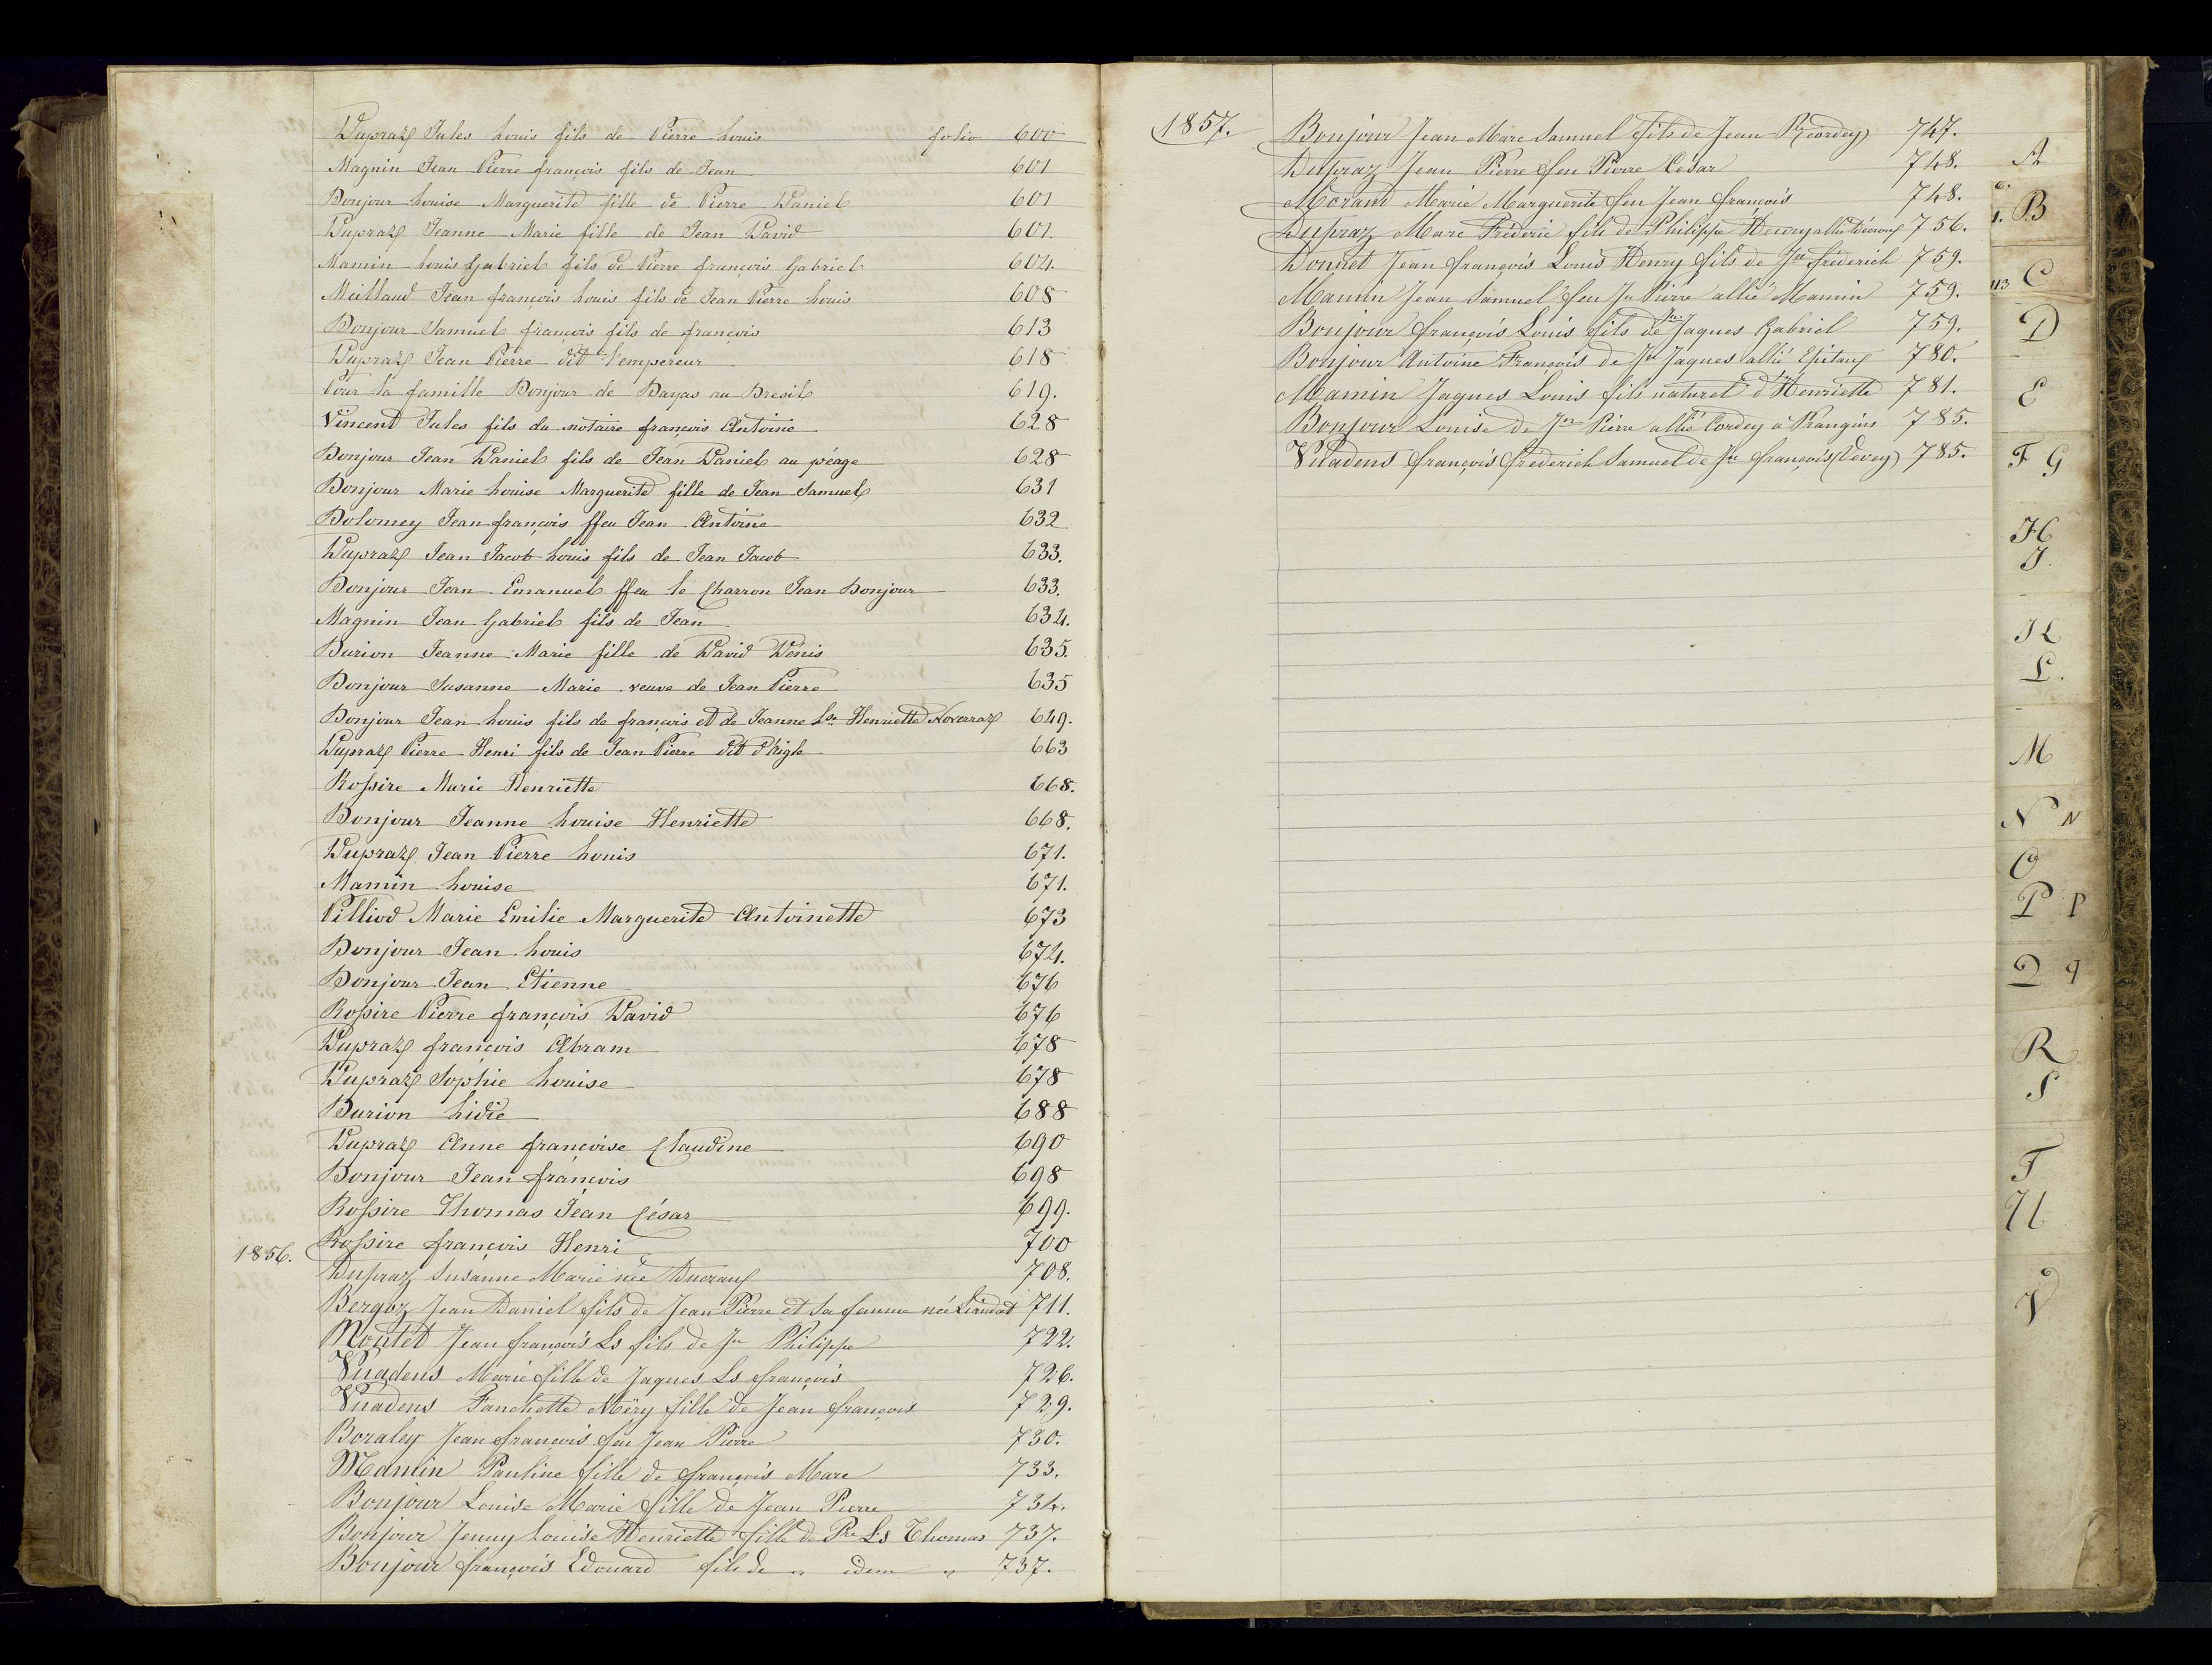 Dupraz Jules Louis fils de Pierre Louis folio 600
Magnin Jean Pierre françois fils de Jean 601
Bonjour Louise Marguerite fille de Pierre Daniel 601
Dupraz Jeanne Marie fille de Jean David 601.
Mamin Louis Gabriel fils de Pierre françois Gabriel 604.
Meillaud Jean françois Louis fils de Jean Pierre Louis 608
Bonjour Samuel françois fils de françois 613
Dupraz Jean Pierre dit l'empereur 618
Pour la famille Bonjour de Bayas au Bresil 619.
Vincent Jules fils du notaire françois Antoine 628
Bonjour Jean Daniel fils de Jean Daniel au péage 628
Bonjour Marie Louise Marguerite fille de Jean Samuel 631
Dolomey Jean françois ffeu Jean Antoine 632
Dupraz Jean Jacob Louis fils de Jean Jacob 633.
Bonjour Jean Emanuel ffeu le Charron Jean Bonjour 633.
Magnin Jean Gabriel fils de Jean 634.
Burion Jeanne Marie fille de David Denis 635.
Bonjour Susanne Marie veuve de Jean Pierre 635
Bonjour Jean Louis fils de françois et de Jeanne Lse Henriette Noverraz 649.
Dupraz Pierre Henri fils de Jean Pierre dit d'Aigle 663
Rossire Marie Henriette 668.
Bonjour Jeanne Louise Henriette 668.
Dupraz Jean Pierre Louis 671.
Mamin Louise 671.
Pilliod Marie Emilie Marguerite Antoinette 673
Bonjour Jean Louis 674.
Bonjour Jean Etienne 676
Rossire Pierre françois David 676
Dupraz françois Abram 678
Dupraz Sophie Louise 678
Burion Lidie 688
Dupraz Anne françoise Claudine 690
Bonjour Jean françois 698
Rossire Thomas Jean César 699.
1856. Rossire françois Henri 700
Dupraz Susanne Marie née Ducraux 708.
Bergoz Jean Daniel fils de Jean Pierre et sa femme née Liaudat 711.
Montet Jean françois Ls fils de Jn Philippe 722.
Vuadens Marie fille de Jaques Ls françois 726.
Vuadens Fanchette Méry fille de Jean françois 729.
Boraley Jean françois feu Jean Pierre 730.
Mamin Pauline fille de françois Marc 733.
Bonjour Louise Marie fille de Jean Pierre 734.
Bonjour Jenny Louise Henriette fille de Pre Ls Thomas 737.
Bonjour françois Edouard fils de " idem " 737.
1857. Bonjour Jean Marc Samuel fils de Jean Pre (Cordey) 747.
Dupraz Jean Pierre feu Pierre César 748.
Morand Marie Marguerite feu Jean françois 748.
Dupraz Marc Fréderic fils de Philippe Henry allié 756.
Donnet Jean françois Louis Henry fils de Jn frederich 759.
Mamin Jean Samuel feu Jn Pierre allié Mamin 759.
Bonjour françois Louis fils de Jn Jaques Gabriel 759.
Bonjour Antoine François de Jn Jaques allié Epitaux 780.
Mamin Jaques Louis fils naturel d'Henriette 781.
Bonjour Louise de Jn Pierre allié Cordey à Prangins 785.
Vuadens françois frederich Samuel de Jn françois (Devey) 785.
A
B
C
D
E
F G
H
J.
K
L.
M
N N
O
P P
Q q
R
S
T
U
V